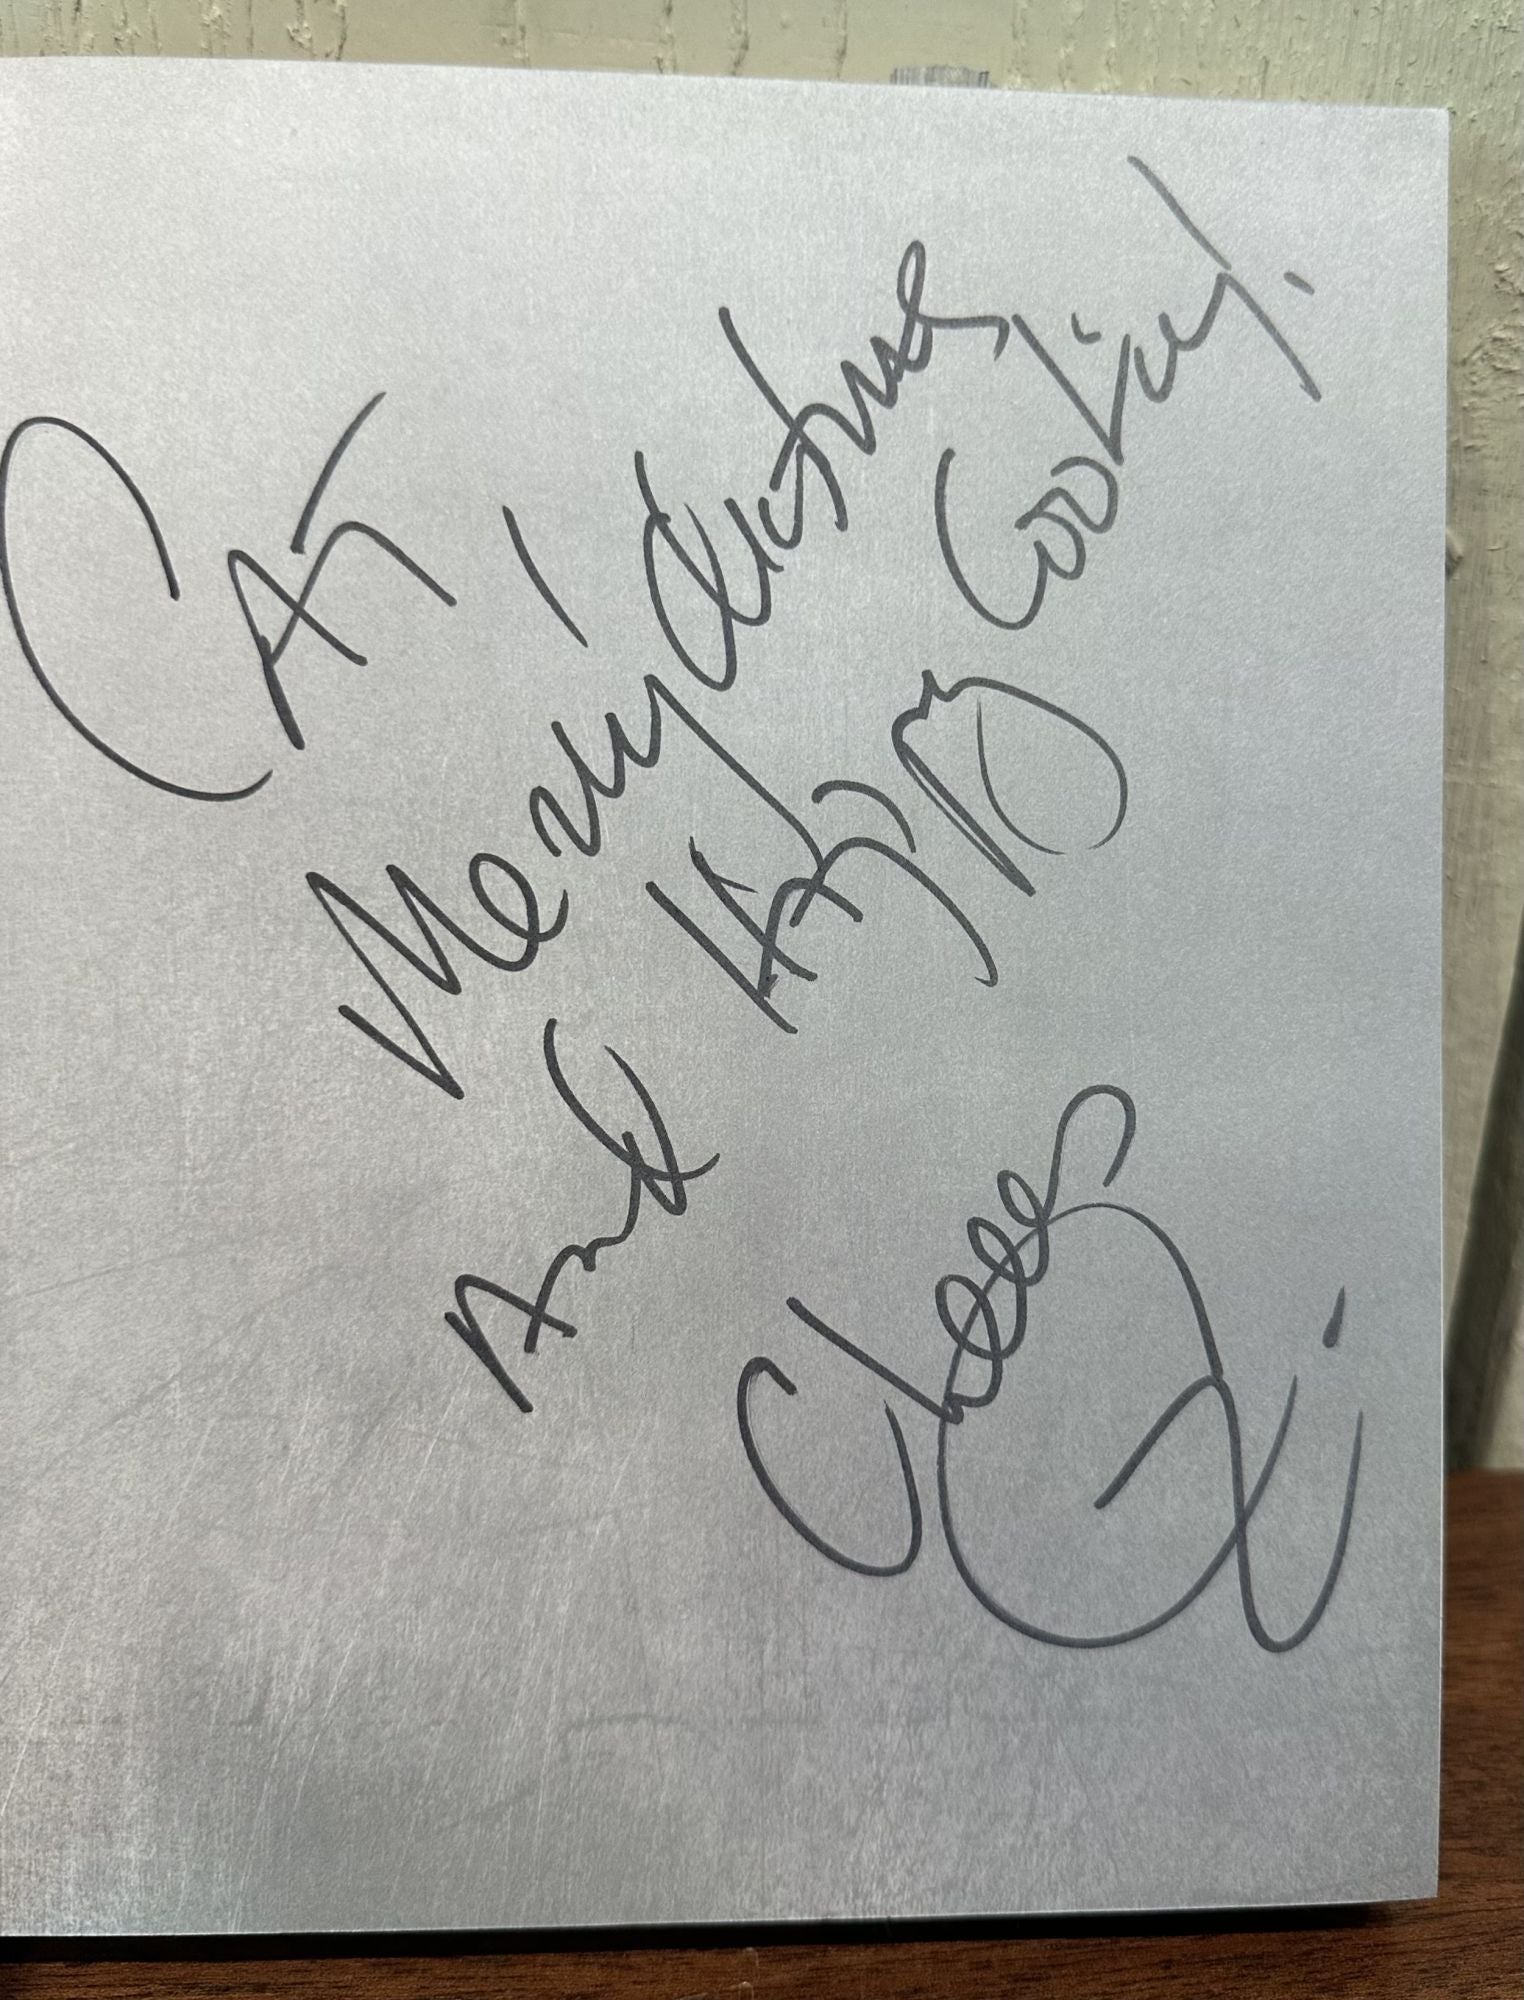 CAT,
Merry Christmas
And Happy Cooking!
Cheers